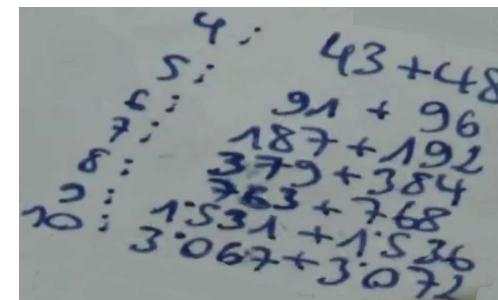 4: 43 + 48
5: 91 + 96
6: 187 + 192
7: 379 + 384
8: 763 + 768
9: 1·531 + 1·536
10: 3·067 + 3·072